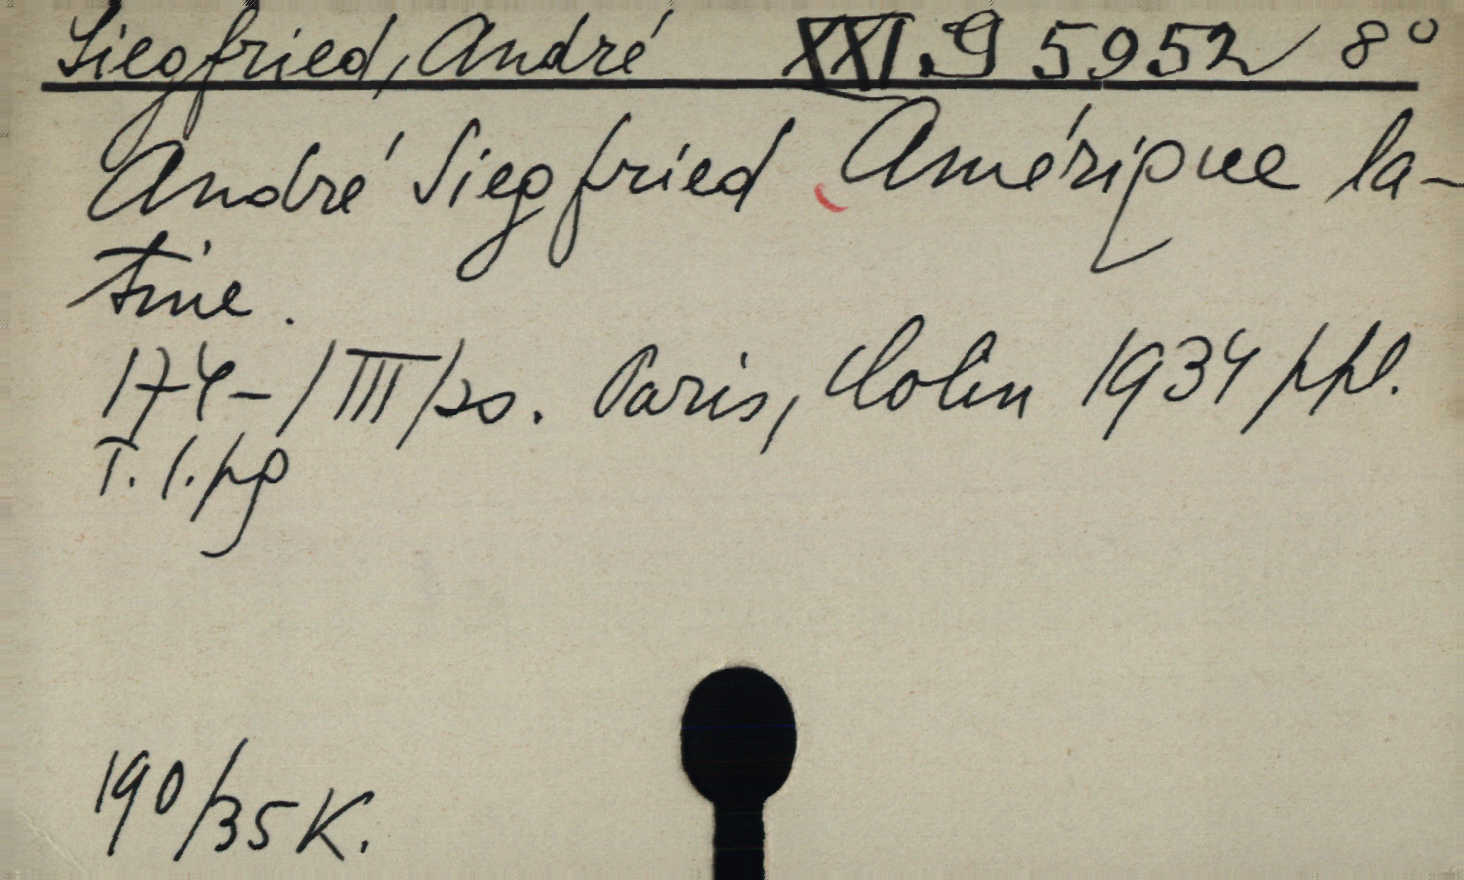 Siegfried, André XXI.G 5952 8°
André Siegfried Amérique la-
tine.
174-/III/so. Paris, Colin 1934 ppl.
T. 1. pg
190/35 K.